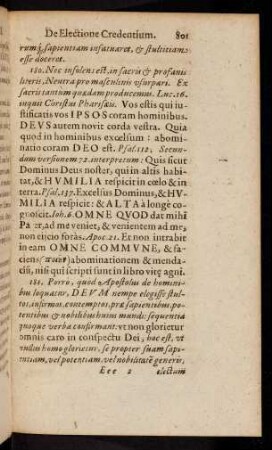 De Electione Credentium. 801
rumq́;, sapientiam infatuaret, & stultitiam
esse doceret.
180. Nec insolens est, in sacris & profanis
literis, Neutra pro masculinis usurpari. Ex
sacris tantùm quædam producemus. Luc. 16.
inquit Christus Pharisæis. Vos estis qui iu-
stificatis vos IPSOS coram hominibus.
DEVS autem novit corda vestra. Quia
quod in hominibus excelsum: abomi-
natio coram DEO est. Psal. 112. Secun-
dum versionem 72. interpretum: Quis sicut
Dominus Deus noster, qui in altis habi-
tat, & HVMILIA respicit in cœlo & in
terra. Psal. 137. Excelsus Dominus, & HV-
MILIA respicit: & ALTA à longè co-
gnoscit. Ioh. 6. OMNE QVOD dat mihi
Pater, ad me veniet, & venientem ad me,
non eijcio foràs. Apoc. 21. Et non intrabit
in eam OMNE COMMVNE, &
faciens () abominationem & menda-
cium, nisi qui scripti sunt in libro vitę agni.
181. Porrò, quod Apostolus de homini-
bus loquatur, DEVM nempe elegisse stul-
tos, infirmos, contemptos, præ sapientibus, po-
tentibus & nobilibus huius mundi: sequentia
quoque verba confirmant: vt non glorietur
omnis caro in conspectu Dei, hoc est, vt
nullus homo glorietur, se propter suam sapi-
entiam, vel potentiam, vel nobilitatē generis,
Eee 2 electum